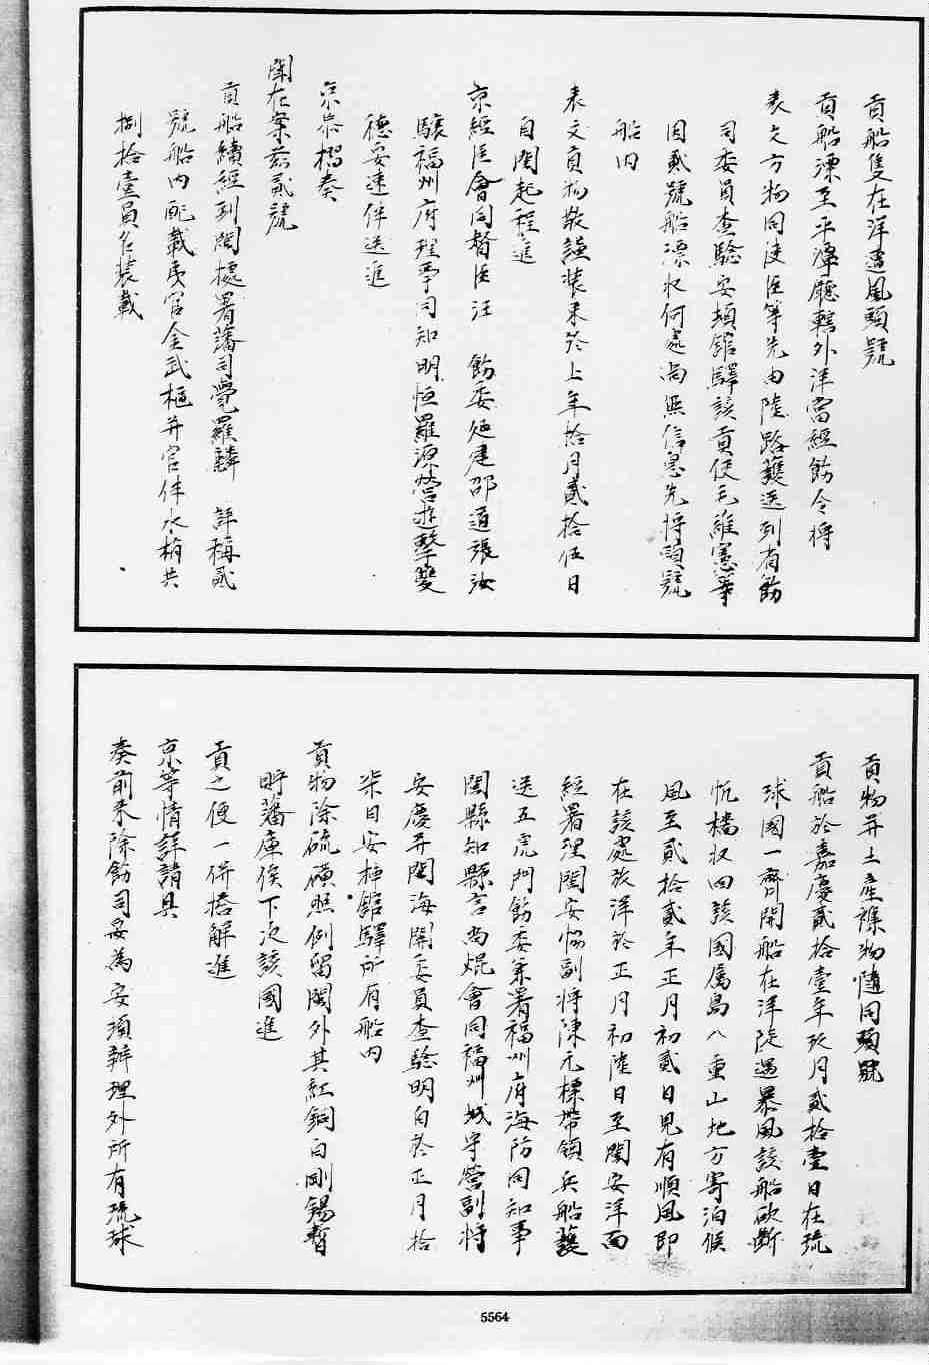 貢船隻在洋遭風頭號
貢船漂至平潭廳轄外洋當經飭令將
表文方物同使臣等先由陸路護送到省飭
司委員查驗安頓館驛該貢使毛維憲等
因貳號船漂收何處尚無信息先將頭號
船內
表文貢物敬謹裝束於上年拾月貳拾伍日
自閩起程進
京經臣會同督臣汪 飭委延建邵道張汝
驤福州府理事同知明恒羅源營遊擊雙
德妥速伴送進
京恭摺奏
聞在案茲貳號
貢船續經到閩據署藩司覺羅麟 詳稱貳
號船內配載夷官金武樞并官伴水梢共
捌拾壹員名裝載
貢物并土產雜物隨同頭號
貢船於嘉慶貳拾壹年玖月貳拾壹日在琉
球國一齊開船在洋陡遇暴風該船砍斷
桅檣收回該國屬島八重山地方寄泊候
風至貳拾貳年正月初貳日見有順風即
在該處放洋於正月初陸日至閩安洋面
經署理閩安協副將陳元標帶領兵船護
送五虎門飭委兼署福州府海防同知事
閩縣知縣言尚焜會同福州城守營副將
安慶并閩海關委員查驗明白於正月拾
柒日安插館驛所有船內
貢物除硫磺照例留閩外其紅銅白剛錫暫
貯藩庫俟下次該國進
貢之便一併搭解進
京等情詳請具
奏前來除飭司妥為安頓辦理外所有琉球
5564